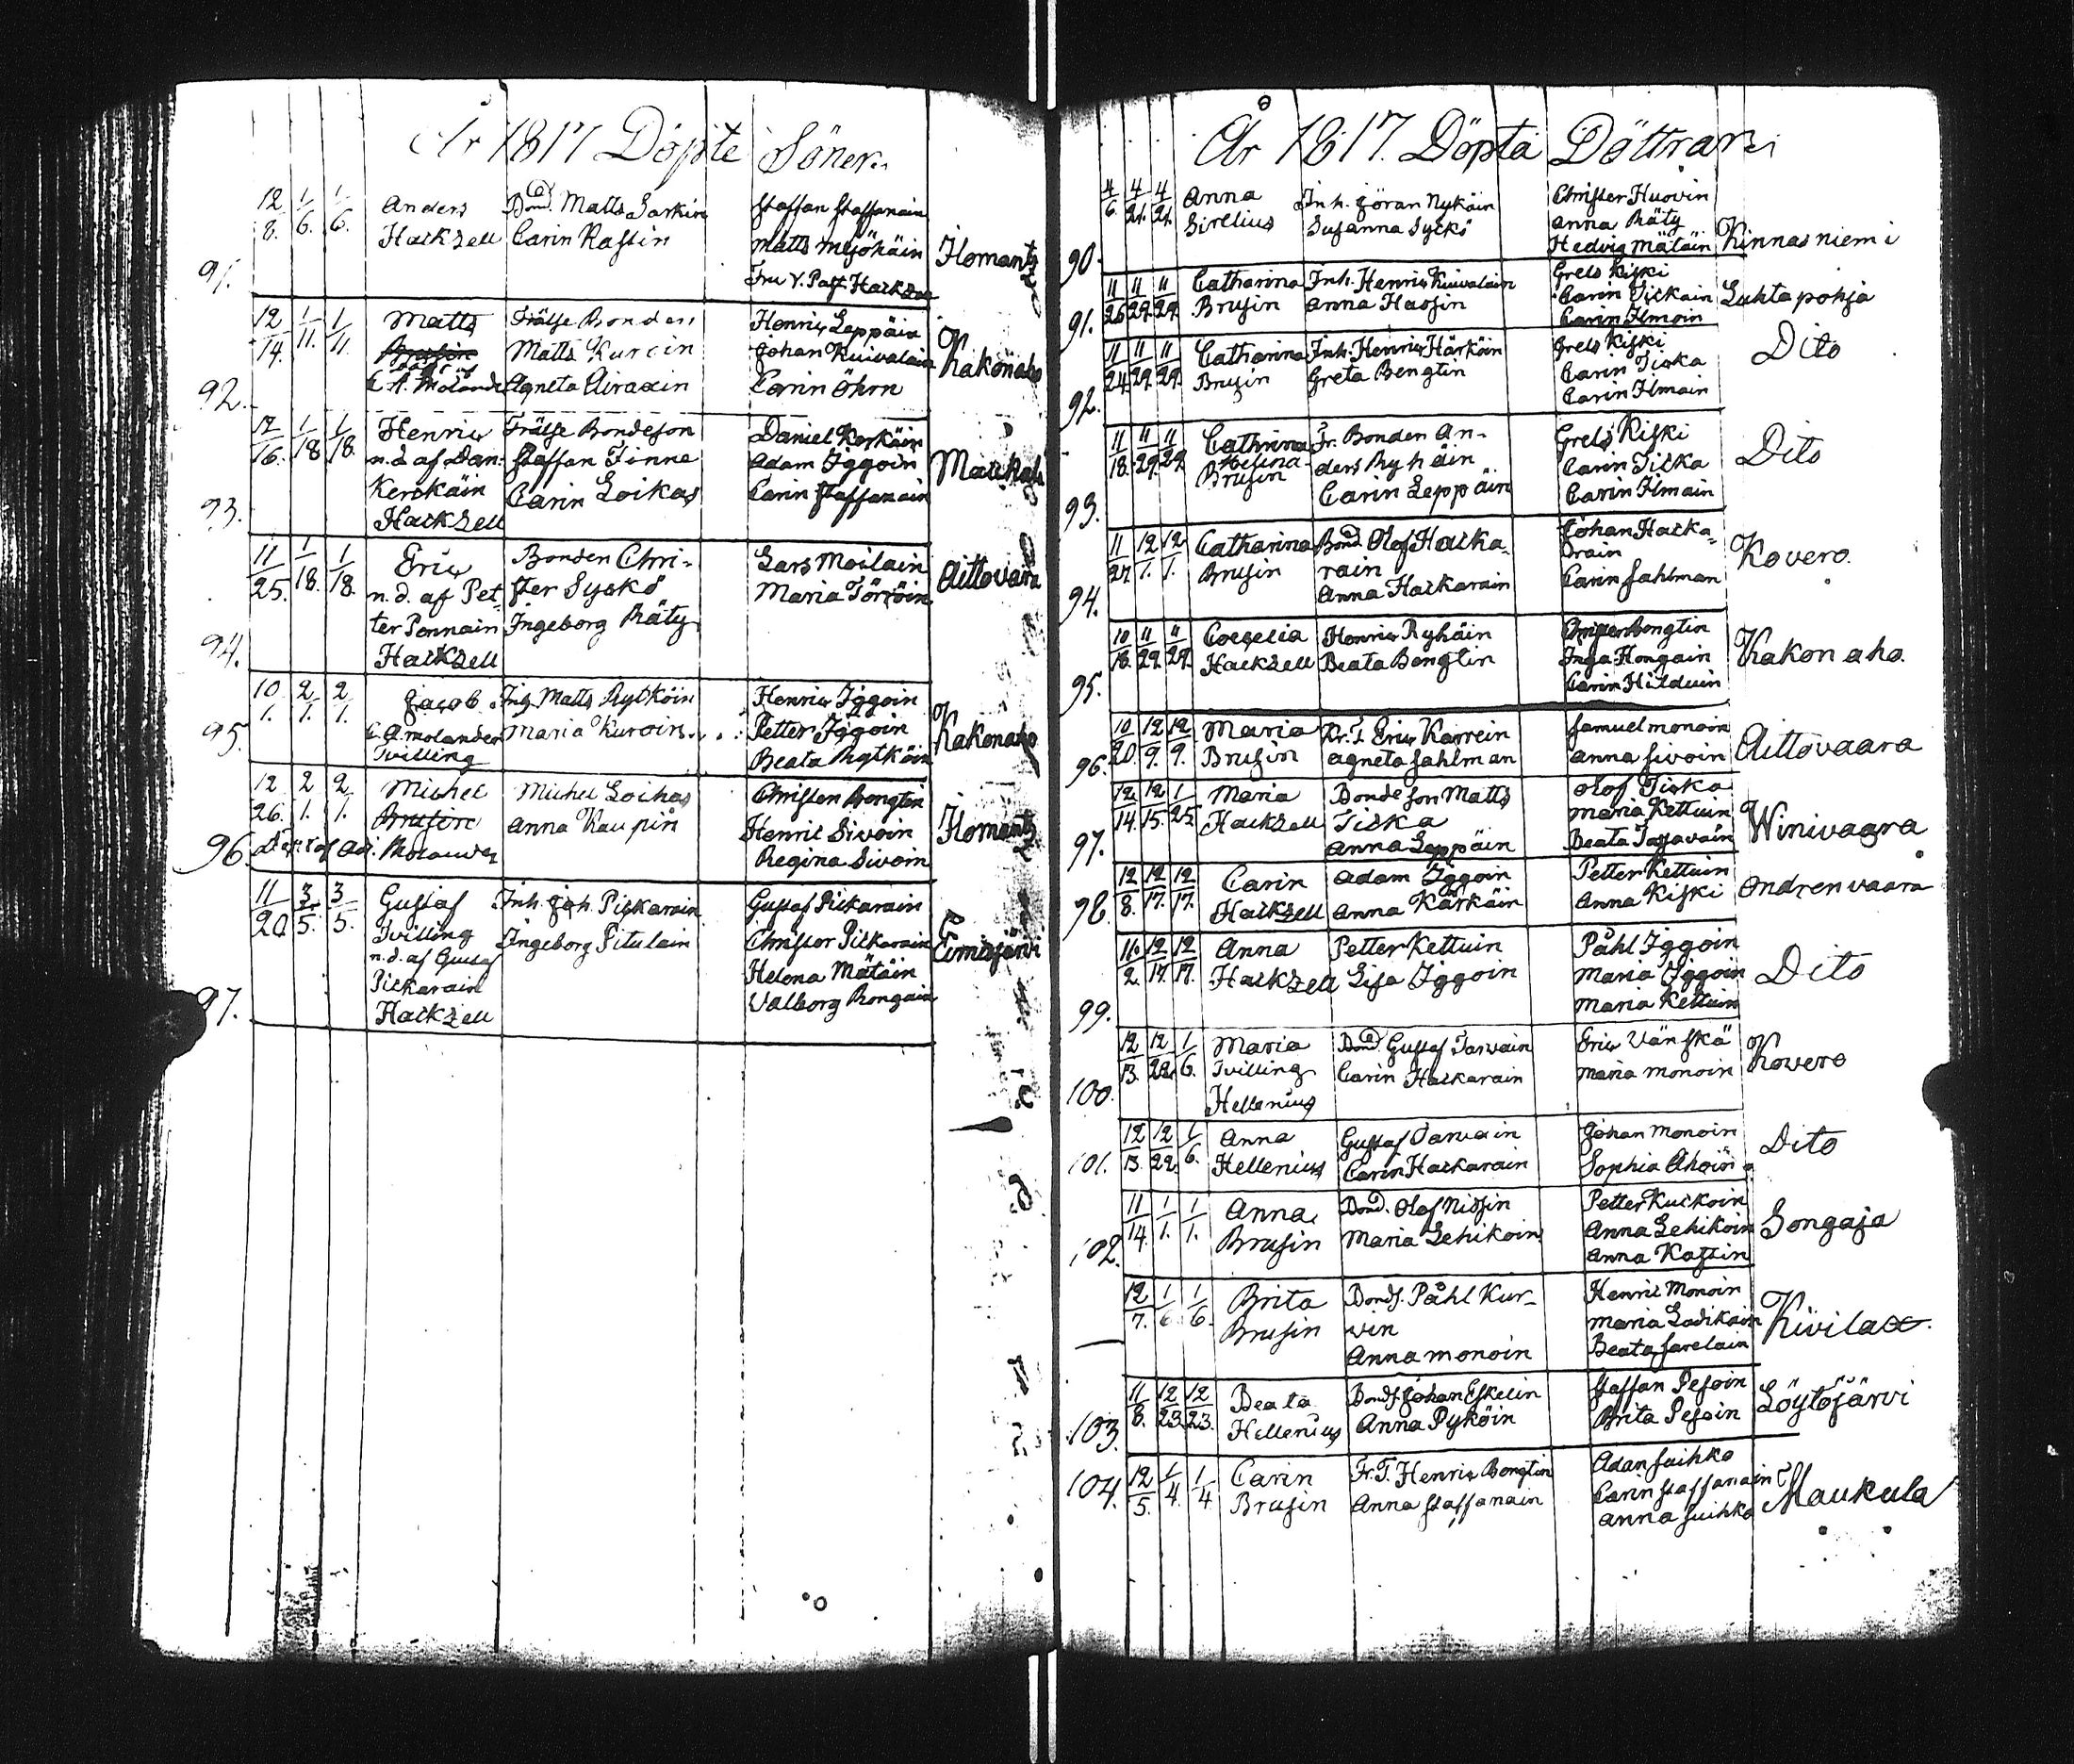 År 1817 Döpte Söner.
12/8. 1/6. 1/6. Anders Bond. Matts Sarkin Staffan Staffanain
Hackzell Carin Kassin Matts
91. Fru V. Past. Hackzell Ilomants
12/14. 1/11. 1/11. Matts Frälse Bonden Henric Leppäin
Brusin Matts Kuroin Johan Kuivalain Kakonaho
92. C. A. Molander Agneta Airaxin Carin Öhrn
12/16. 1/18. 1/18. Henric Frälse Bondeson Daniel Kerkäin
n.d. af Dan. Staffan Finne Adam Iggoin Maukala
93. Kerckäin Carin Loikas Carin Staffanain
Hackzell
11/25. 1/18. 1/18. Eric Bonden Chri- Lars Moilain Aittovaara
n.d. af Pet- ster Syckö Maria Törröin
ter Pennain Ingeborg Räty
94. Hackzell
10/1. 2/1. 2/1. Jacob Inh. Matts Rytköin Henric Iggoin
95. C. A. Molander Maria Kuroin Petter Iggoin Kakonaho
Tvilling Beata Rytköin
12/26. 2/1. 2/1. Michel Michel Loikas Christer Bengtin
Brusin Anna Kaupin Henric Sivoin Ilomants
96. Regina Sivoin
11/20. 3/5. 3/5. Gustaf Inh. Joh. Pickarain Gustaf Pickarain
Tvilling Ingeborg Pitulain Christer Pickarain
n.d. af Gustaf Helena Mätäin
Pickarain Valborg Rongain
97. Hackzell
År 1817. Döpta Döttrar
4/6. 4/21. 4/21. Anna Inh. Göran Nykäin Christer Huovin
Sirelius Susanna Syckö Anna Räty
90. Hedvig Mätäin Kinnasniemi
11/26. 11/29. 11/29. Catharina Inh. Henric Kuivalain Grels Kiski
Brusin Anna Hassin Carin Tickain Luhtapohja
91. Carin Ilmain
11/24. 11/29. 11/29. Catharina Inh. Henric Härköin Grels Kiski Dito
Brusin Greta Bengtin Carin Ticka
92. Carin Ilmain
11/18. 11/29. 11/29. Cathrina Fr. Bonden An- Grels Kiski Dito
Helena ders Ryhäin Carin Ticka
93. Brusin Carin Leppäin Carin Ilmain
11/27. 12/1. 12/1. Catharina Bond. Olof Hacka- Johan Hacka-
Brusin rain rain Kovero.
94. Anna Hackarain Carin Sahlman
10/18. 11/29. 11/29. Cecelia Henric Ryhäin Christer Bengtin
Hackzell Beata Bengtin Inga Hongain Kakonaho.
95. Carin Hilduin
10/20. 12/9. 12/9. Maria Fr. T. Eric Karrein Samuel Monoin
96. Brusin Agneta Sahlman Anna Sivoin Aittovaara
12/14. 12/15. 1/25. Maria Bondeson Matts Olof Ticka
Hackzell Ticka Maria Kettuin Winivaara
97. Anna Leppäin Beata
12/8. 12/17. 12/17. Carin Adam Iggoin Petter Kettuin
98. Hackzell Anna Kärkäin Anna Kiski Ondrenvaara
11/2. 12/17. 12/17. Anna Petter Kettuin Påhl Iggoin
Hackzell Lisa Iggoin Maria Iggoin Dito
99. Maria Kettuin
12/13. 12/22. 1/6. Maria Bond. Gustaf Tarvain Eric Vänskä
Tvilling Carin Hackarain Maria Monoin Kovero
100. Hellenius
12/13. 12/22. 1/6. Anna Gustaf Tarvain Johan Monoin Dito
101. Hellenius Carin Hackarain Sophia Ahoin
11/14. 1/1. 1/1. Anna Bond. Olof Nissin Petter Kuckoin
Brusin Maria Lehikoin Anna Lehikoin Songaja
102. Anna Kassin
12/7. 1/6. 1/6. Brita Bonds. Påhl Kur- Henric Monoin
Brusin vin Maria Ladikain Kivilax.
Anna Monoin Beata Sarelain
11/8. 12/23. 12/23. Beata Bonds. Johan Eskelin Staffan Pesoin
103. Hellenius Anna Pyköin Brita Pesoin Löytöjärvi
104. 12/5. 1/4. 1/4. Carin Fr. T. Henric Bengtin Adam Suihko
Brusin Anna Staffanain Carin Staffanain Maukula
Anna Suihko